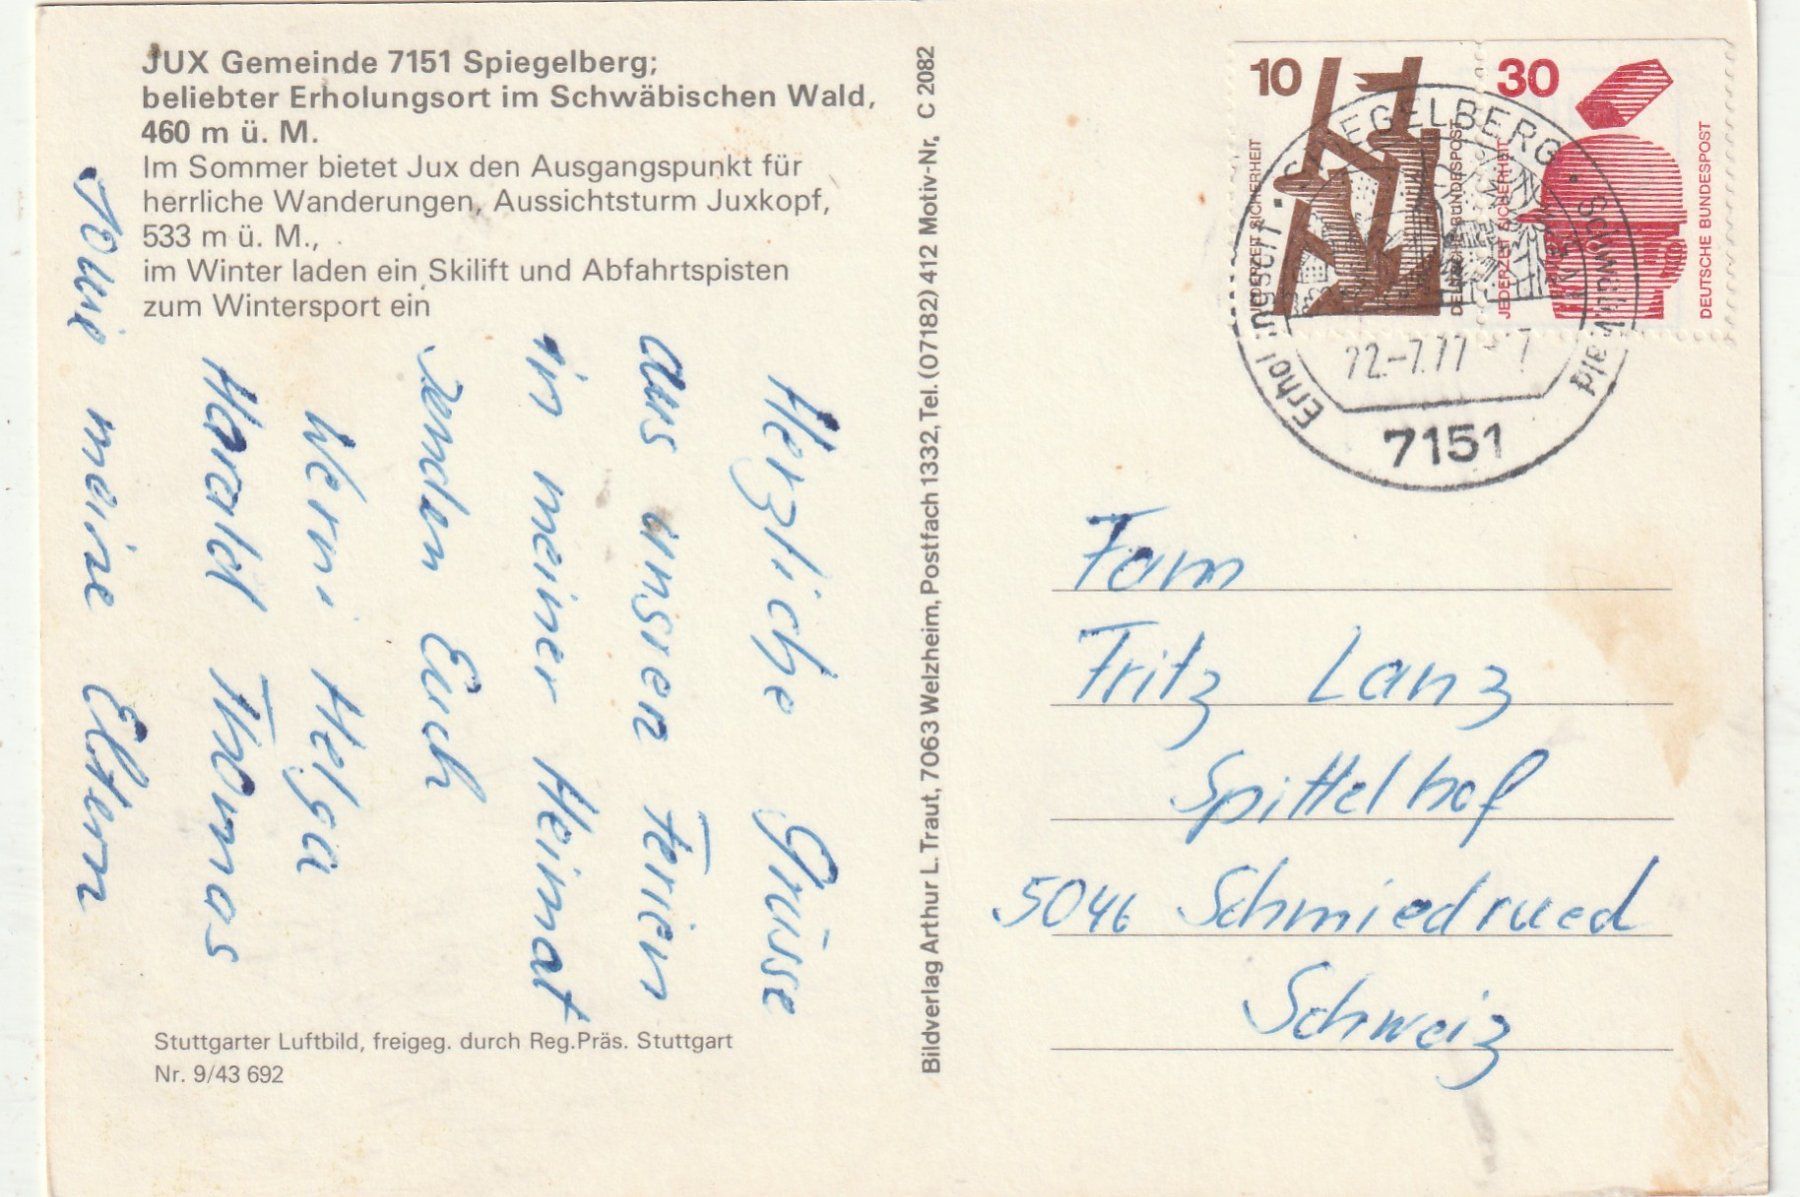 JUX Gemeinde 7151 Spiegelberg;
beliebter Erholungsort im Schwäbischen Wald,
460 m ü. M.
Im Sommer bietet Jux den Ausgangspunkt für
herrliche Wanderungen, Aussichtsturm Juxkopf,
533 m ü. M.,
im Winter laden ein Skilift und Abfahrtspisten
zum Wintersport ein
Herzliche Grüsse
aus unsren Ferien
in meiner Heimat
senden Euch
Werni Helga
Harald Thomas
sowie meine Eltern
Stuttgarter Luftbild, freigeg. durch Reg.Präs. Stuttgart
Nr. 9/43 692
Bildverlag Arthur L. Traut, 7063 Welzheim, Postfach 1332, Tel. (07182) 412 Motiv-Nr. C 2082
10
JEDERZEIT SICHERHEIT
DEUTSCHE BUNDESPOST
30
JEDERZEIT SICHERHEIT
DEUTSCHE BUNDESPOST
SPIEGELBERG
22.-7.77 - 7
7151
Fam
Fritz Lanz
Spittelhof
5046 Schmiedrued
Schweiz